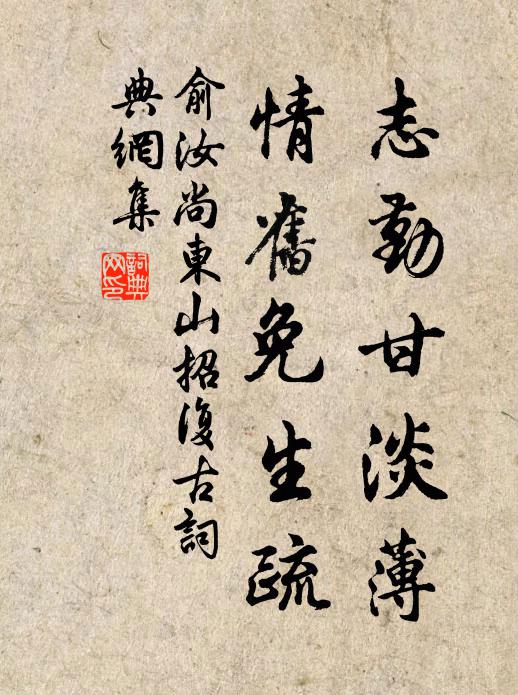 志勤甘淡薄
情舊免生疏
俞汝尚東山招復古詞
典網集
詞典
网印